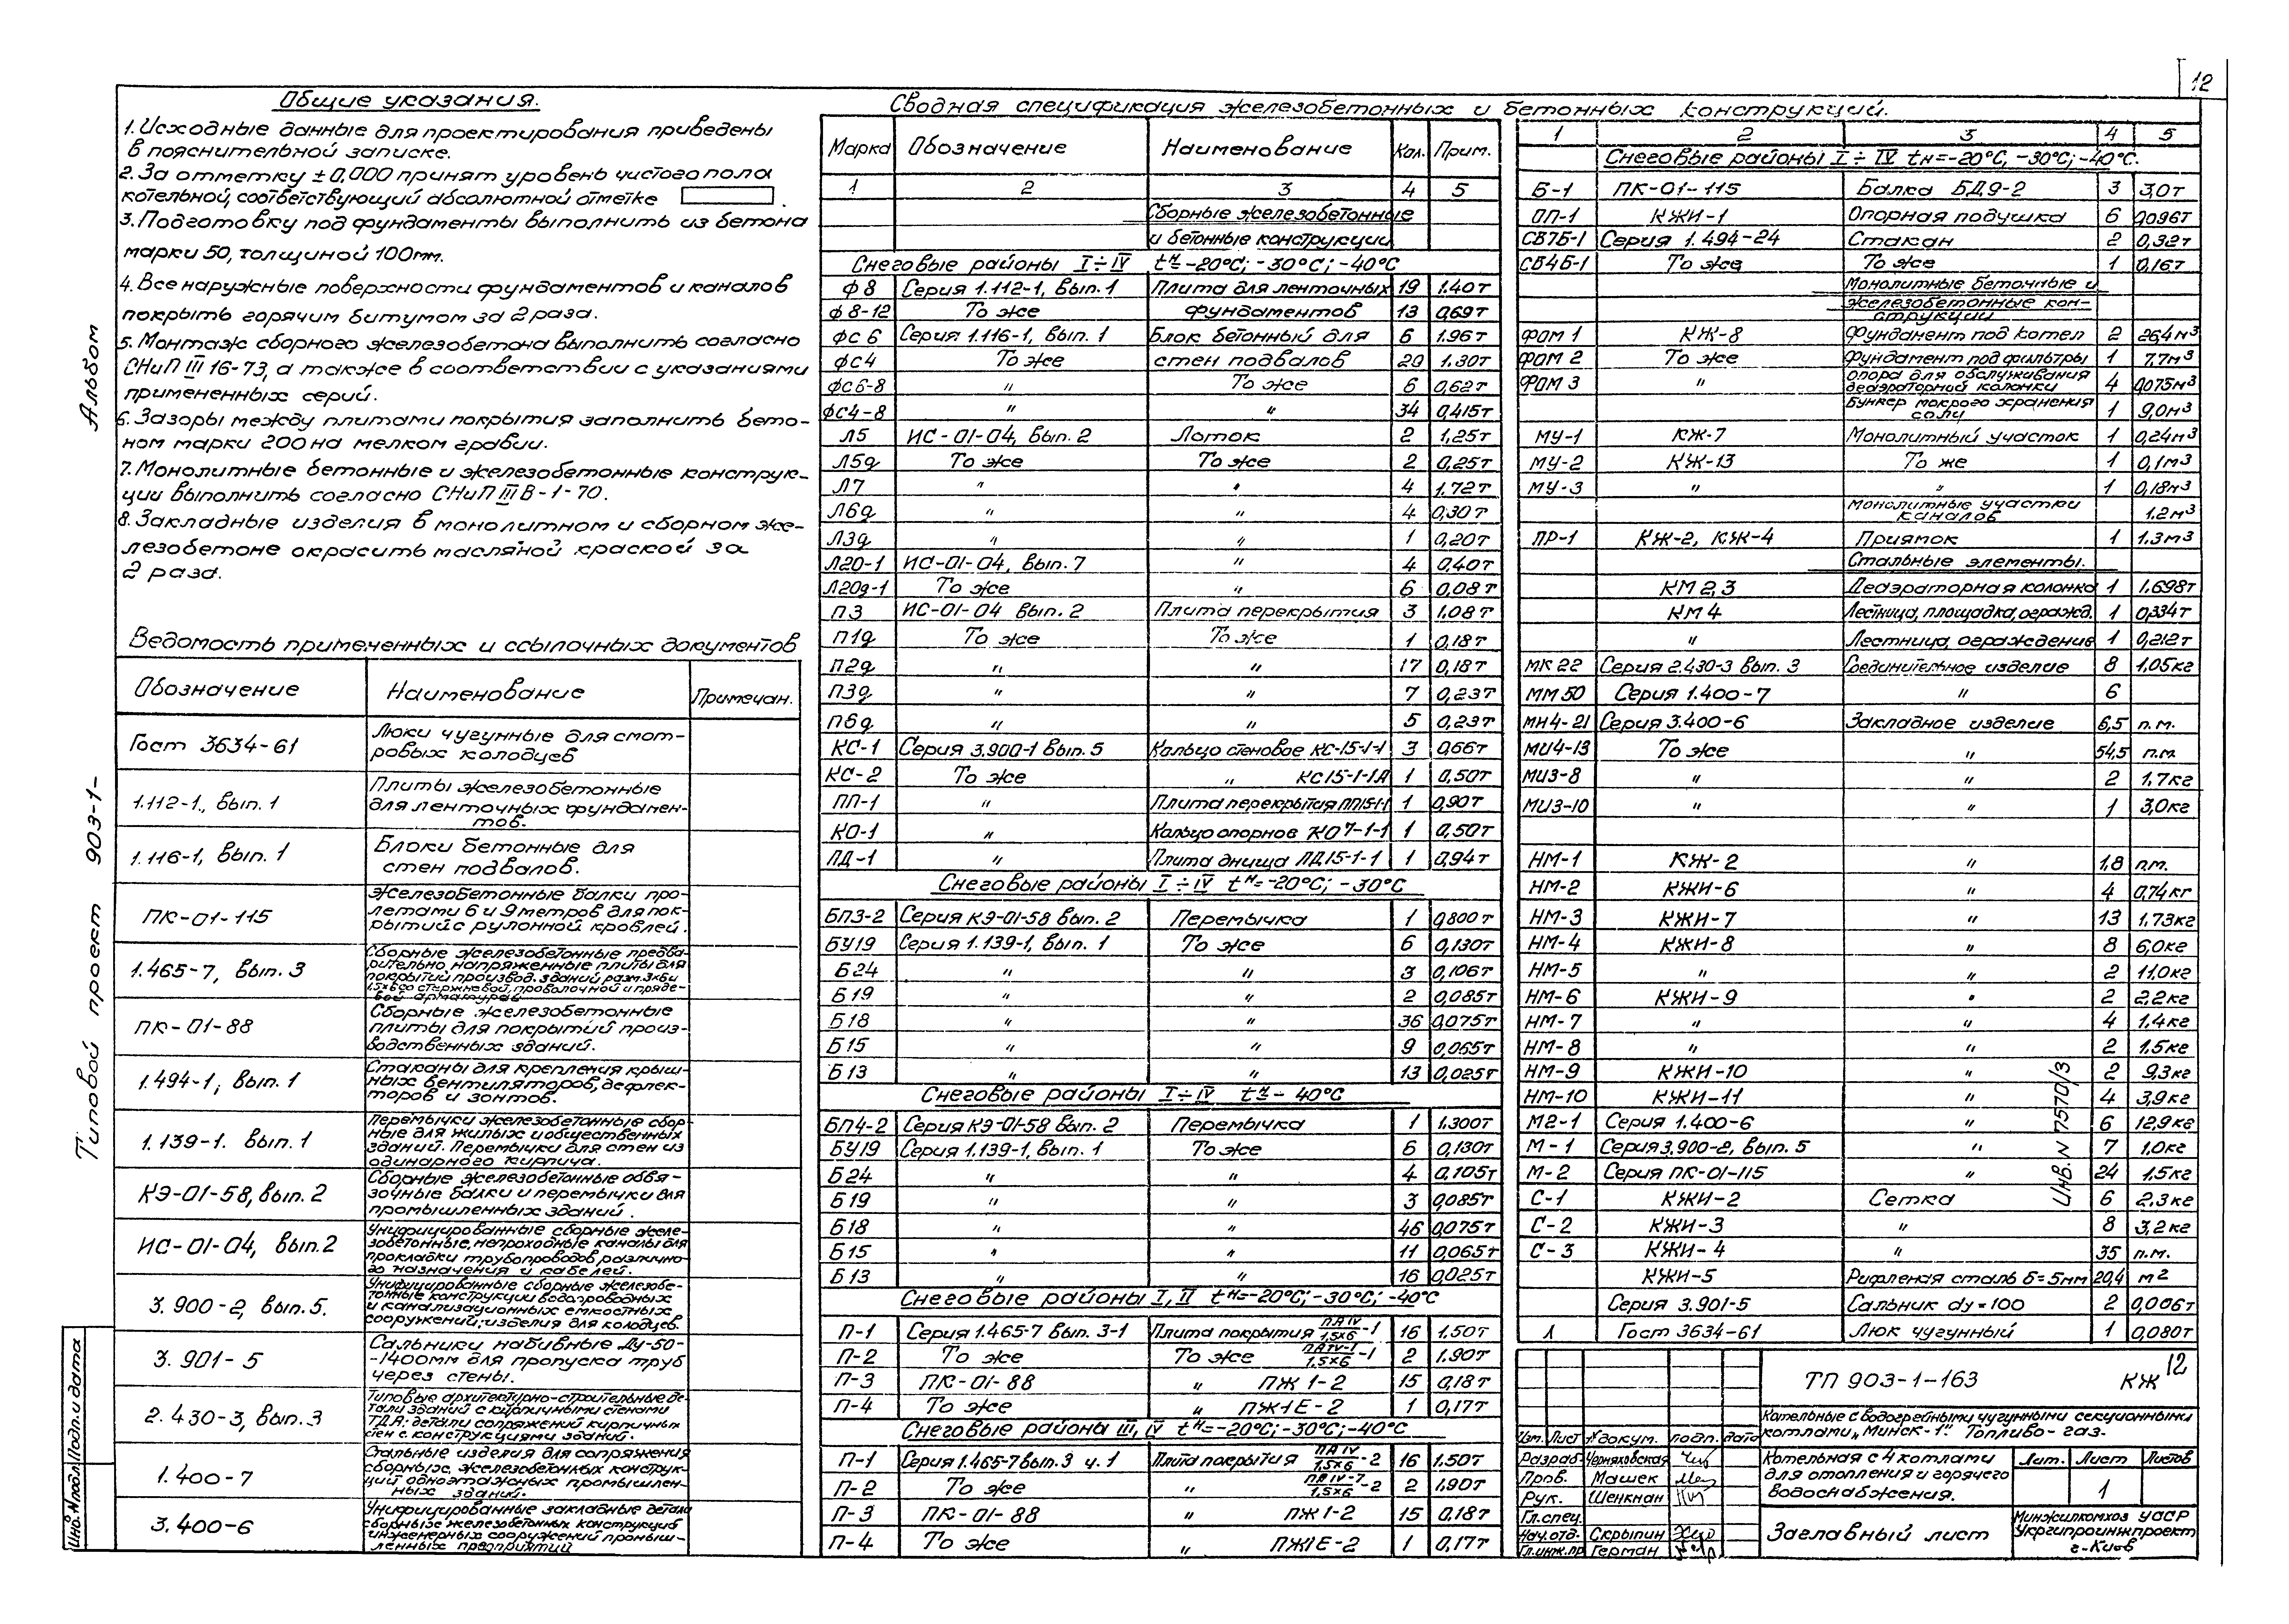 12
Общие указания.
1. Исходные данные для проектирования приведены
в пояснительной записке.
2. За отметку ±0,000 принят уровень чистого пола
котельной, соответствующий абсолютной отметке .
3. Подготовку под фундаменты выполнить из бетона
марки 50, толщиной 100мм.
4. Все наружные поверхности фундаментов и каналов
покрыть горячим битумом за 2 раза.
5. Монтаж сборного железобетона выполнить согласно
СНиП III 16-73, а также в соответствии с указаниями
примененных серий.
6. Зазоры между плитами покрытия заполнить бето-
ном марки 200 на мелком гравии.
7. Монолитные бетонные и железобетонные конструк-
ции выполнить согласно СНиП III В-1-70.
8. Закладные изделия в монолитном и сборном же-
лезобетоне окрасить масляной краской за
2 раза.
Ведомость примененных и ссылочных документов
Обозначение Наименование Примечан.
Гост 3634-61 Люки чугунные для смот-
ровых колодцев
1.112-1., вып. 1 Плиты железобетонные
для ленточных фундамен-
тов.
1.116-1, вып. 1 Блоки бетонные для
стен подвалов.
ПК-01-115 Железобетонные балки про-
летами 6 и 9 метров для пок-
рытий с рулонной кровлей.
1.465-7, вып. 3 Сборные железобетонные предва-
рительно напряженные плиты для
покрытий производ. зданий разм. 3х6 и
1,5х6 со стержневой, проволочной и пряде-
вой арматурой
ПК-01-88 Сборные железобетонные
плиты для покрытий произ-
водственных зданий.
1.494-1, вып. 1 Стаканы для крепления крыш-
ных вентиляторов, дефлек-
торов и зонтов.
1.139-1. вып. 1 Перемычки железобетонные сбор-
ные для жилых и общественных
зданий. Перемычки для стен из
одинарного кирпича.
КЭ-01-58, вып. 2 Сборные железобетонные обвя-
зочные балки и перемычки для
промышленных зданий.
ИС-01-04, вып. 2 Унифицированные сборные желе-
зобетонные, непроходные каналы для
прокладки трубопроводов различно-
го назначения и кабелей.
3.900-2, вып. 5. Унифицированные сборные железобе-
тонные конструкции водопроводных
и канализационных емкостных
сооружений; изделия для колодцев.
3.901-5 Сальники набивные Ду-50-
-1400мм для пропуска труб
через стены.
2.430-3, вып. 3 Типовые архитектурно-строительные де-
тали зданий с кирпичными стенами
ТДА: детали сопряжений кирпичных
стен с конструкциями зданий.
1.400-7 Стальные изделия для сопряжения
сборных железобетонных конструк-
ций одноэтажных промышлен-
ных зданий.
3.400-6 Унифицированные закладные детали
сборных железобетонных конструкций
инженерных сооружений промыш-
ленных предприятий
Сводная спецификация железобетонных и бетонных конструкций.
Марка Обозначение Наименование Кол. Прим.
1 2 3 4 5
Сборные железобетонные
и бетонные конструкции
Снеговые районы I÷IV tн=-20°С; -30°С; -40°С
Ф8 Серия 1.112-1, вып. 1 Плита для ленточных 19 1.40т
Ф8-12 То же фундаментов 13 0,69т
ФС6 Серия 1.116-1, вып. 1 Блок бетонный для 6 1.96т
ФС4 То же стен подвалов 20 1.30т
ФС6-8 " То же 6 0,62т
ФС4-8 " " 34 0,415т
Л5 ИС-01-04, вып. 2 Лоток 2 1,25т
Л5д То же То же 2 0,25т
Л7 " " 4 1.72т
Л6д " " 4 0,30т
Л3д " " 1 0,20т
Л20-1 ИС-01-04, вып. 7 " 4 0,40т
Л20д-1 То же " 6 0,08т
П3 ИС-01-04 вып. 2 Плита перекрытия 3 1,08т
П1д То же То же 1 0,18т
П2д " " 17 0,18т
П3д " " 7 0,23т
П6д " " 5 0,23т
КС-1 Серия 3.900-1 вып. 5 Кольцо стеновое КС-15-1-1 3 0,66т
КС-2 То же " КС15-1-1А 1 0,50т
ПП-1 " Плита перекрытия ПП15-1-1 1 0,90т
КО-1 " Кольцо опорное КО7-1-1 1 0,50т
ПД-1 " Плита днища ПД15-1-1 1 0,94т
Снеговые районы I÷IV tн=-20°С; -30°С
БП3-2 Серия КЭ-01-58 вып. 2 Перемычка 1 0,800т
БУ19 Серия 1.139-1, вып. 1 То же 6 0,130т
Б24 " " 3 0,106т
Б19 " " 2 0,085т
Б18 " " 36 0,075т
Б15 " " 9 0,065т
Б13 " " 13 0,025т
Снеговые районы I÷IV tн=- 40°С
БП4-2 Серия КЭ-01-58 вып. 2 Перемычка 1 1.300т
БУ19 Серия 1.139-1, вып. 1 То же 6 0,130т
Б24 " " 4 0,105т
Б19 " " 3 0,085т
Б18 " " 46 0,075т
Б15 " " 11 0,065т
Б13 " " 16 0,025т
Снеговые районы I, II tн=-20°С; -30°С; -40°С
П-1 Серия 1.465-7 вып. 3-1 Плита покрытия ПАIV/1,5х6-1 16 1.50т
П-2 То же То же ПАIV-1/1,5х6-1 2 1.90т
П-3 ПК-01-88 " ПЖ1-2 15 0,18т
П-4 То же " ПЖ1Е-2 1 0,17т
Снеговые районы III, IV tн=-20°С; -30°С; -40°С
П-1 Серия 1.465-7 вып. 3 ч. 1 Плита покрытия ПАIV/1,5х6-2 16 1.50т
П-2 То же " ПАIV-7/1,5х6-2 2 1,90т
П-3 ПК-01-88 " ПЖ1-2 15 0.18т
П-4 То же " ПЖ1Е-2 1 0,17т
1 2 3 4 5
Снеговые районы I÷IV tн=-20°С, -30°С; -40°С.
Б-1 ПК-01-115 Балка БД9-2 3 3,0т
ОП-1 КЖИ-1 Опорная подушка 6 0,096т
СВ7Б-1 Серия 1.494-24 Стакан 2 0,32т
СВ4Б-1 То же То же 1 0,16т
Монолитные бетонные и
железобетонные кон-
струкции
ФОМ 1 КЖ-8 Фундамент под котел 2 26,4м³
ФОМ 2 То же Фундамент под фильтры 1 7,7м³
ФОМ 3 " Опора для обслуживания
деаэраторной колонки 4 0,075м³
Бункер мокрого хранения
соли 1 9,0м³
МУ-1 КЖ-7 Монолитный участок 1 0,24м³
МУ-2 КЖ-13 То же 1 0,1м³
МУ-3 " " 1 0,18м³
Монолитные участки
каналов 1.2м³
ПР-1 КЖ-2, КЖ-4 Приямок 1 1.3м³
Стальные элементы.
КМ 2,3 Деаэраторная колонка 1 1.698т
КМ 4 Лестница, площадка, огражд. 1 0,334т
" Лестница, ограждение 1 0,212т
МК 22 Серия 2.430-3 вып. 3 Соединительное изделие 8 1,05кг
ММ 50 Серия 1.400-7 " 6
МН4-21 Серия 3.400-6 Закладное изделие 6,5 п.м.
МИ4-13 То же " 54,5 п.м.
МИ3-8 " " 2 1,7кг
МИ3-10 " " 1 3,0кг
НМ-1 КЖ-2 " 1,8 п.м.
НМ-2 КЖИ-6 " 4 0,74кг
НМ-3 КЖИ-7 " 13 1,73кг
НМ-4 КЖИ-8 " 8 6,0кг
НМ-5 " " 2 11.0кг
НМ-6 КЖИ-9 " 2 2,2кг
НМ-7 " " 4 1.4кг
НМ-8 " " 2 1.5кг
НМ-9 КЖИ-10 " 2 9,3кг
НМ-10 КЖИ-11 " 4 3,9кг
М2-1 Серия 1.400-6 " 6 12,9кг
М-1 Серия 3.900-2, вып. 5 " 7 1,0кг
М-2 Серия ПК-01-115 " 24 1,5кг
С-1 КЖИ-2 Сетка 6 2,3кг
С-2 КЖИ-3 " 8 3,2кг
С-3 КЖИ-4 " 35 п.м.
КЖИ-5 Рифленая сталь δ=5мм 20,4 м²
Серия 3.901-5 Сальник dу=100 2 0,006т
Л Гост 3634-61 Люк чугунный 1 0,080т
Инв. N 7570/3
ТП 903-1-163 КЖ 12
Котельные с водогрейными чугунными секционными
котлами „Минск-1" Топливо-газ.
Изм. Лист N докум. подп. дата
Разраб. Черняховская
Пров. Машек
Рук. Шенкнан
Гл. спец.
Нач. отд. Скрыпин
Гл. инж. пр. Герман
Котельная с 4 котлами
для отопления и горячего
водоснабжения.
Лит. Лист Листов
1
Заглавный лист
Минжилкомхоз УССР
Укргипроинжпроект
г-Киев
Альбом
Типовой проект 903-1-
Инв. N подл. Подп. и дата